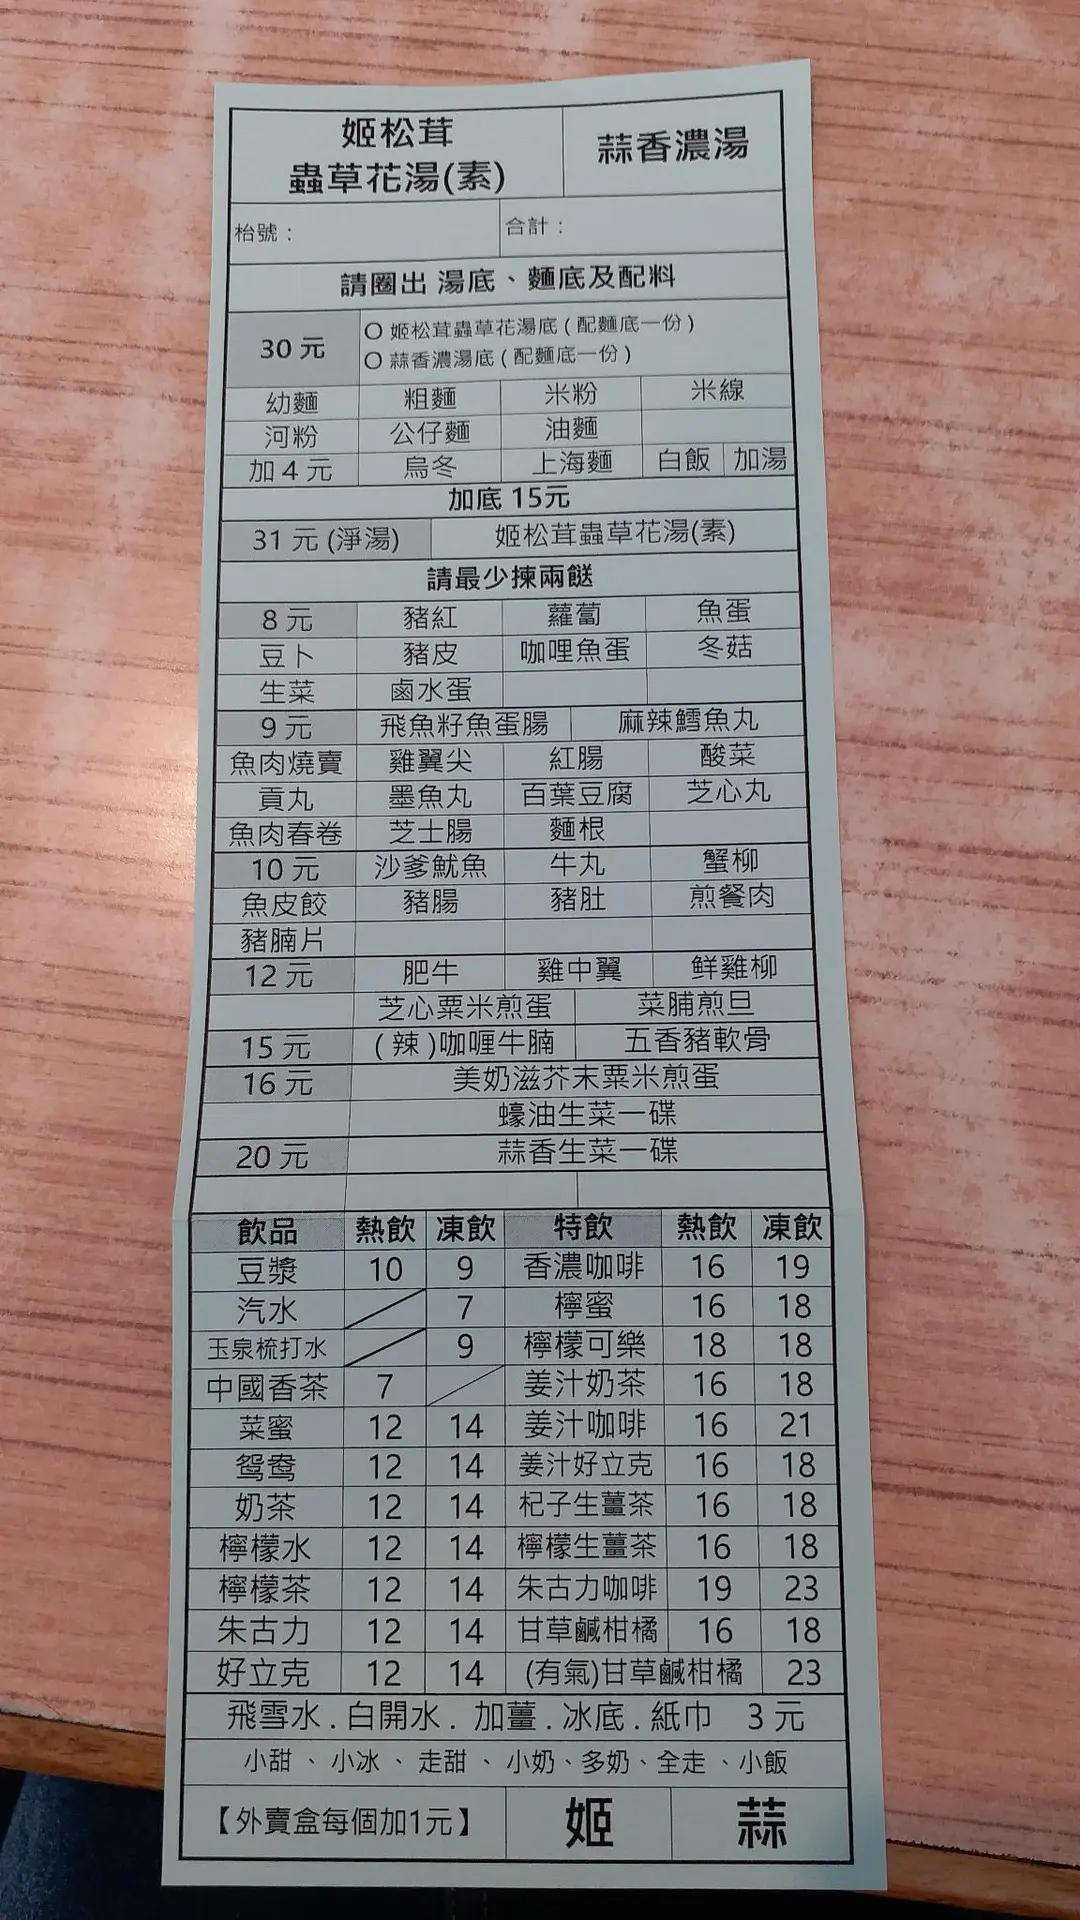 姬松茸
蟲草花湯(素)
蒜香濃湯
枱號：
合計：
請圈出 湯底、麵底及配料
30 元
O 姬松茸蟲草花湯底 ( 配麵底一份 )
O 蒜香濃湯底 ( 配麵底一份 )
幼麵 粗麵 米粉 米線
河粉 公仔麵 油麵
加 4 元 烏冬 上海麵 白飯 加湯
加底 15元
31 元 (淨湯) 姬松茸蟲草花湯(素)
請最少揀兩餸
8 元 豬紅 蘿蔔 魚蛋
豆卜 豬皮 咖哩魚蛋 冬菇
生菜 鹵水蛋
9 元 飛魚籽魚蛋腸 麻辣鱈魚丸
魚肉燒賣 雞翼尖 紅腸 酸菜
貢丸 墨魚丸 百葉豆腐 芝心丸
魚肉春卷 芝士腸 麵根
10 元 沙爹魷魚 牛丸 蟹柳
魚皮餃 豬腸 豬肚 煎餐肉
豬腩片
12 元 肥牛 雞中翼 鮮雞柳
芝心粟米煎蛋 菜脯煎旦
15 元 ( 辣 )咖喱牛腩 五香豬軟骨
16 元 美奶滋芥末粟米煎蛋
蠔油生菜一碟
20 元 蒜香生菜一碟
飲品 熱飲 凍飲 特飲 熱飲 凍飲
豆漿 10 9 香濃咖啡 16 19
汽水 7 檸蜜 16 18
玉泉梳打水 9 檸檬可樂 18 18
中國香茶 7 姜汁奶茶 16 18
菜蜜 12 14 姜汁咖啡 16 21
鴛鴦 12 14 姜汁好立克 16 18
奶茶 12 14 杞子生薑茶 16 18
檸檬水 12 14 檸檬生薑茶 16 18
檸檬茶 12 14 朱古力咖啡 19 23
朱古力 12 14 甘草鹹柑橘 16 18
好立克 12 14 (有氣)甘草鹹柑橘 23
飛雪水 . 白開水 . 加薑 . 冰底 . 紙巾 3 元
小甜 、 小冰 、 走甜 、 小奶、多奶、全走 、小飯
【外賣盒每個加1元】 姬 蒜